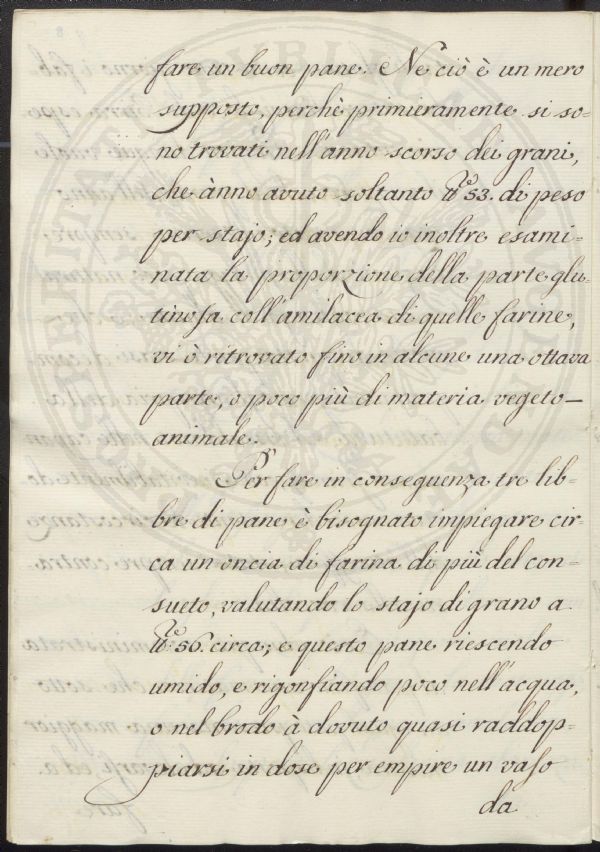 fare un buon pane. Nè ciò è un mero
supposto, perchè primieramente si so=
no trovati nell'anno scorso dei grani,
che ànno avuto soltanto ℔ 53. di peso
per stajo; ed avendo io inoltre esami=
nata la proporzione della parte glu=
tinosa coll'amilacea di quelle farine,
vi ò ritrovato fino in alcune una ottava
parte, o poco più di materia vegeto—
animale.
Per fare in conseguenza tre lib=
bre di pane è bisognato impiegare cir=
ca un oncia di farina di più del con=
sueto, valutando lo stajo di grano a
℔ 56. circa; e questo pane riescendo
umido, e rigonfiando poco nell'acqua,
o nel brodo à dovuto quasi raddop=
piarsi in dose per empire un vaso
da